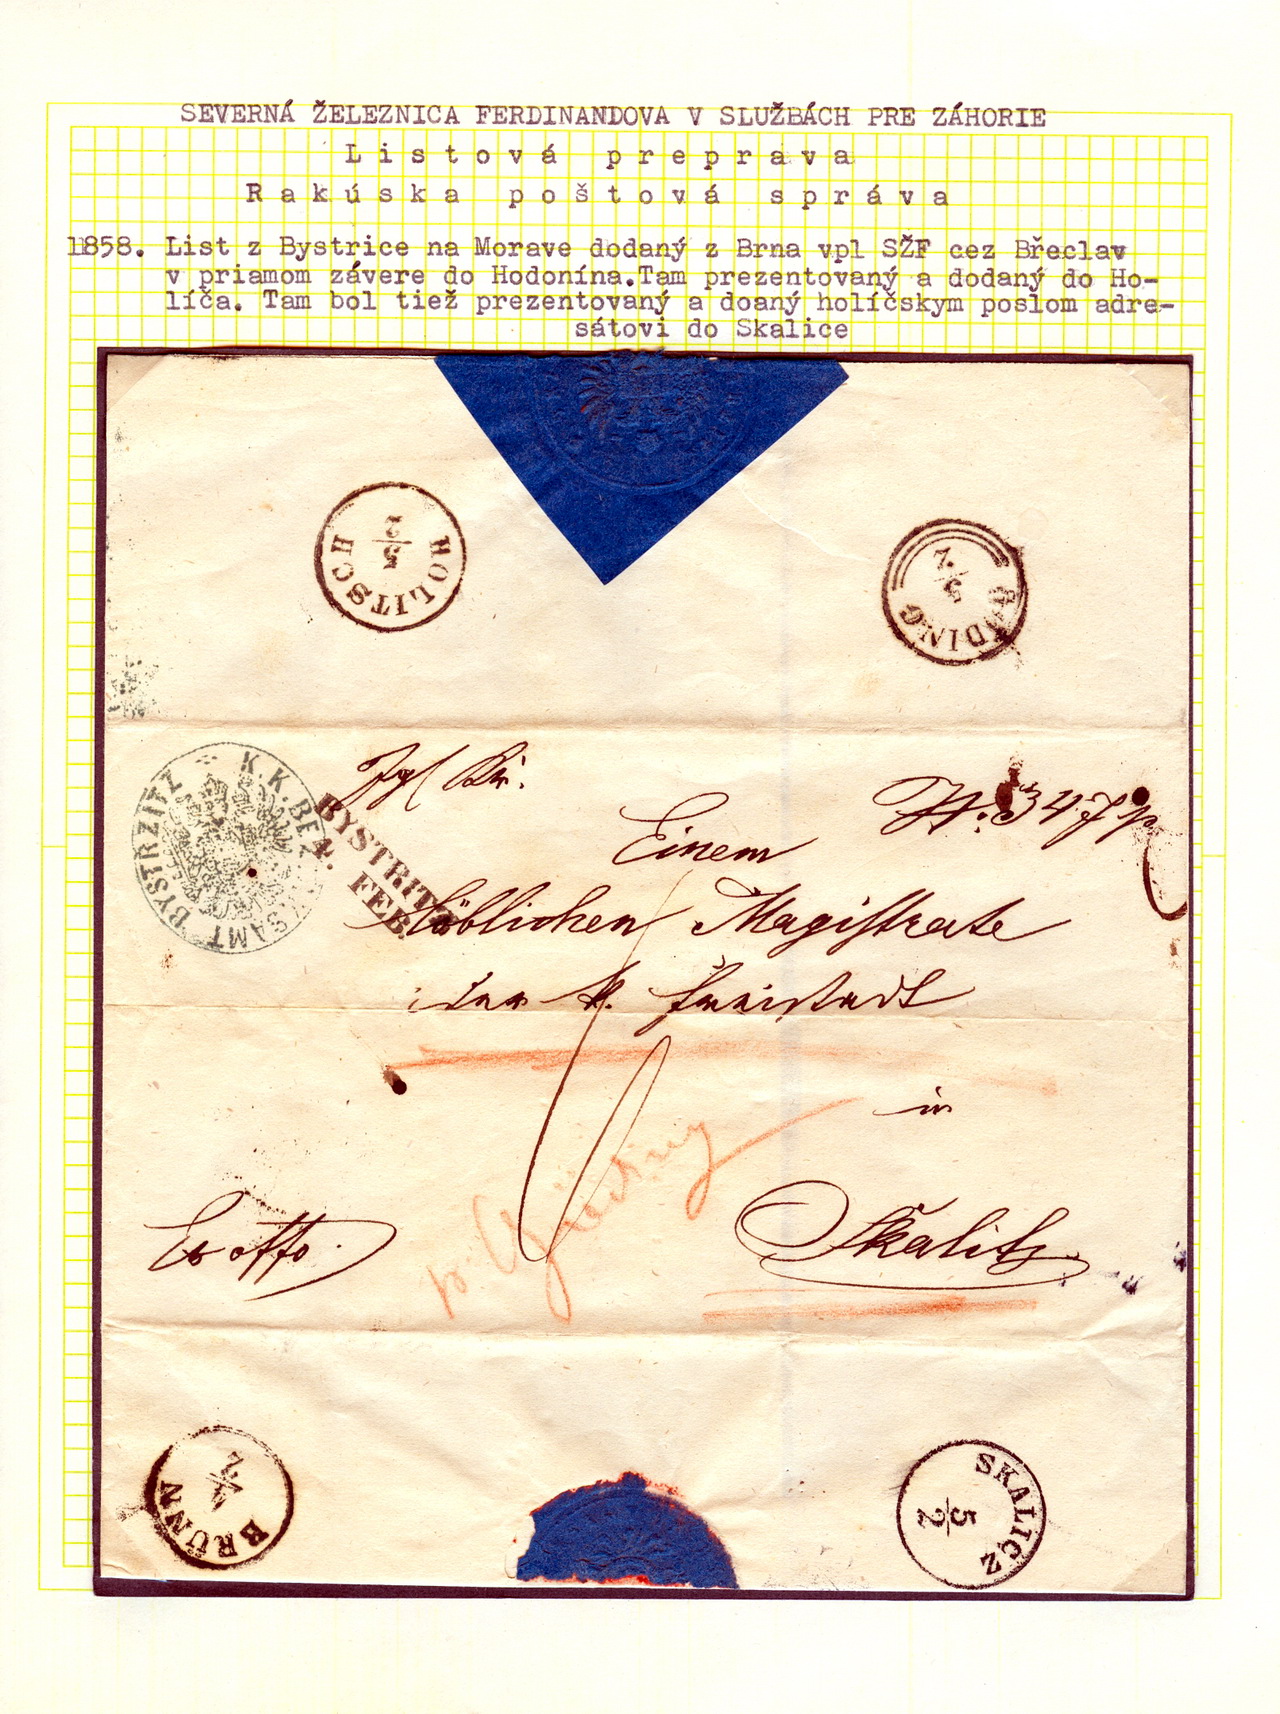 SEVERNÁ ŽELEZNICA FERDINANDOVA V SLUŽBÁCH PRE ZÁHORIE
Listová preprava
Rakúska poštová správa
1858. List z Bystrice na Morave dodaný z Brna vpl SŽF cez Břeclav
v priamom závere do Hodonína.Tam prezentovaný a dodaný do Ho-
líča. Tam bol tiež prezentovaný a doaný holíčskym poslom adre-
sátovi do Skalice
HOLITSCH
5/2
GÖDING
5/2
K.K. BEZ. AMT BYSTRZITZ
BYSTRITZ
FEB.
N: 347
Einem
Löblichen Magistrate
der k. Freistadt
in
Skalitz
Ex offo.
p. Göding
BRÜNN
SKALICZ
5/2